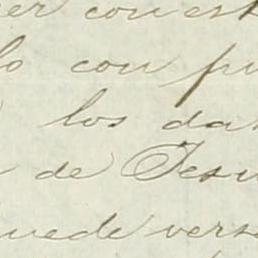 er con est
lo con pu
los dat
de Jesu
uede vers